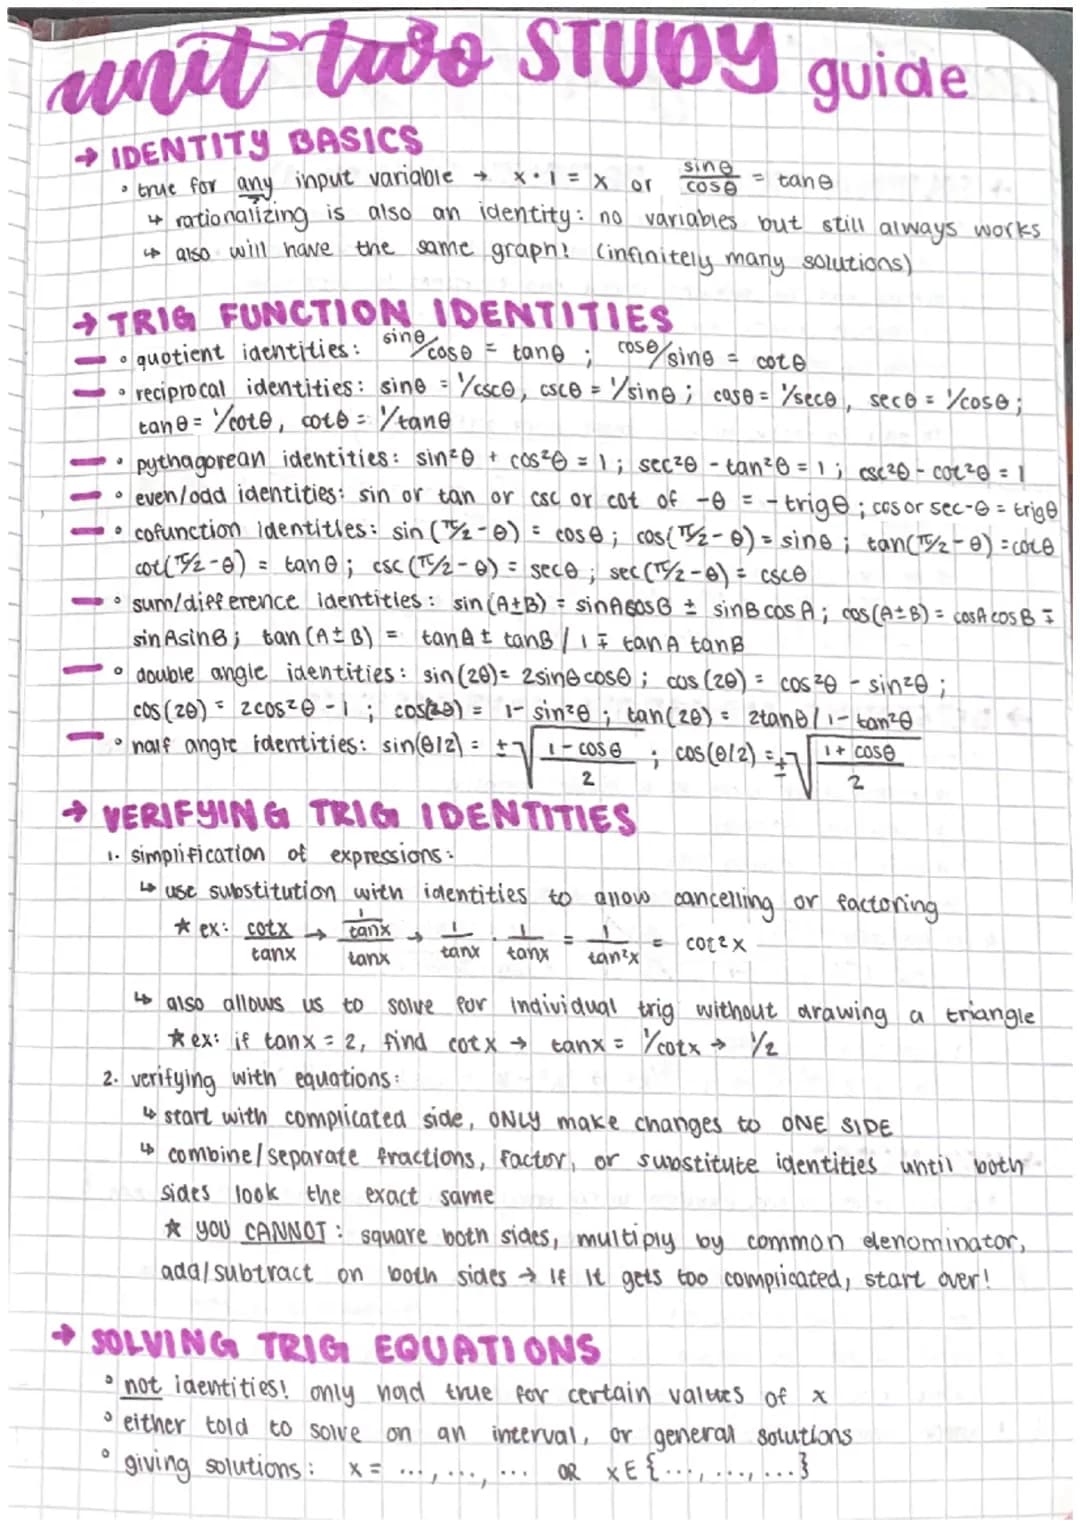 unit two STUDY guide
→ IDENTITY BASICS
• true for any input variable → x · 1 = x or sinθ/cosθ = tanθ
↳ rationalizing is also an identity: no variables but still always works
↳ also will have the same graph! (infinitely many solutions)
→ TRIG FUNCTION IDENTITIES
• quotient identities: sinθ/cosθ = tanθ ; cosθ/sinθ = cotθ
• reciprocal identities: sinθ = 1/cscθ, cscθ = 1/sinθ ; cosθ = 1/secθ, secθ = 1/cosθ ;
tanθ = 1/cotθ, cotθ = 1/tanθ
• pythagorean identities: sin²θ + cos²θ = 1 ; sec²θ - tan²θ = 1 ; csc²θ - cot²θ = 1
• even/odd identities: sin or tan or csc or cot of -θ = -trigθ ; cos or sec -θ = trigθ
• cofunction identities: sin (π/2 - θ) = cosθ ; cos(π/2 - θ) = sinθ ; tan(π/2 - θ) = cotθ
cot(π/2 - θ) = tanθ ; csc (π/2 - θ) = secθ ; sec(π/2 - θ) = cscθ
• sum/difference identities: sin (A±B) = sinAcosB ± sinBcosA ; cos(A±B) = cosAcosB ∓
sinAsinB ; tan (A±B) = tanA ± tanB / 1 ∓ tanA tanB
• double angle identities: sin(2θ) = 2sinθcosθ ; cos (2θ) = cos²θ - sin²θ ;
cos (2θ) = 2cos²θ - 1 ; cos(2θ) = 1 - sin²θ ; tan(2θ) = 2tanθ / 1 - tan²θ
• half angle identities: sin(θ/2) = ±√(1 - cosθ / 2) ; cos(θ/2) = ±√(1 + cosθ / 2)
→ VERIFYING TRIG IDENTITIES
1. simplification of expressions:
↳ use substitution with identities to allow cancelling or factoring
★ ex: cotx/tanx → (1/tanx)/tanx → 1/tanx · 1/tanx = 1/tan²x = cot²x
↳ also allows us to solve for individual trig without drawing a triangle
★ ex: if tanx = 2, find cotx → tanx = 1/cotx → 1/2
2. verifying with equations:
↳ start with complicated side, ONLY make changes to ONE SIDE
↳ combine/separate fractions, factor, or substitute identities until both
sides look the exact same
★ YOU CANNOT: square both sides, multiply by common denominator,
add/subtract on both sides → if it gets too complicated, start over!
→ SOLVING TRIG EQUATIONS
• not identities! only had true for certain values of x
• either told to solve on an interval, or general solutions
• giving solutions: x = ..., ..., ... OR x∈{..., ..., ...}